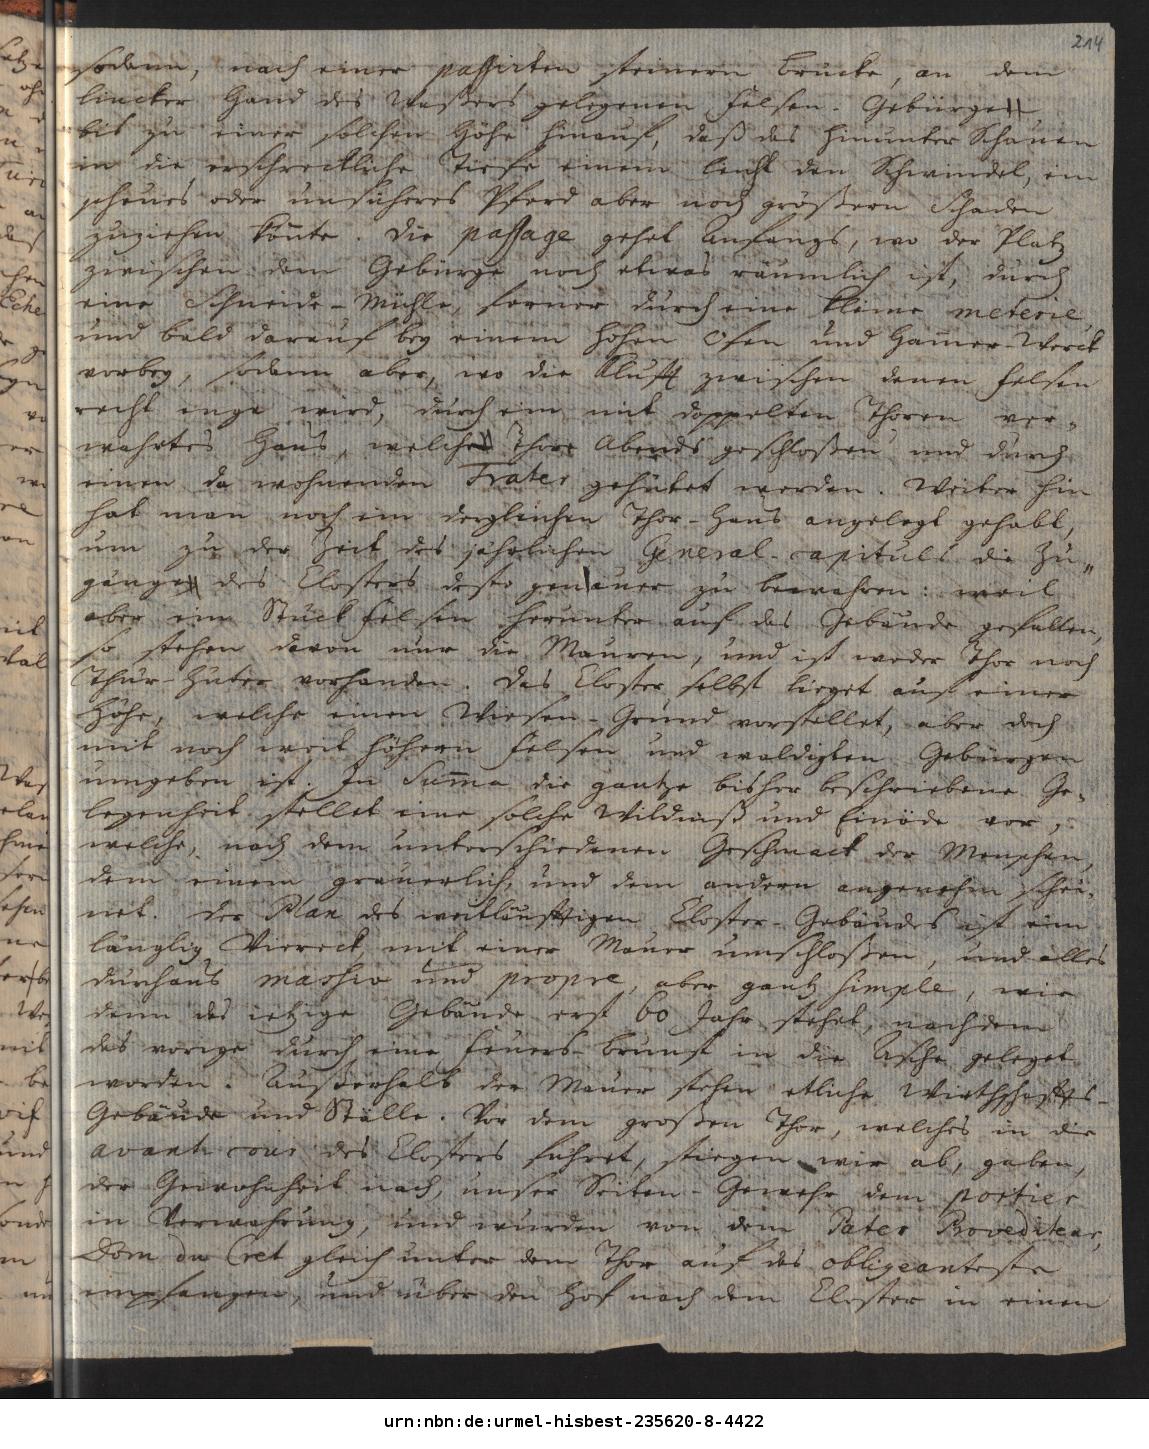 214
sodann, nach einer passirten steinern Brücke, an dem
lincker Hand des Waßers gelegenen Felsen-Gebürge
bis zu einer solchen Höhe hinauf, daß das hinunter Schauen
in die erschreckliche Tiefe einem leicht den Schwindel, ein
scheues oder unsicheres Pferd aber noch größern Schaden
zuziehen könte. Die passage gehet Anfangs, wo der Platz
zwischen dem Gebürge noch etwas räumlich ist, durch
eine Schneide-Mühle, ferner durch eine kleine meterie
und bald darauf bey einem hohen Ofen und Ham̅er-Werck
vorbey, sodann aber, wo die Klufft zwischen denen Felsen
recht enge wird, durch ein mit doppelten Thoren ver-
wahrtes Haus, welche Thore Abends geschloßen und durch
einen da wohnenden Frater gehütet werden. Weiter hin
hat man noch ein dergleichen Thor-Haus angelegt gehabt,
um zu der Zeit des jährlichen General-capituls die Zu-
gänge des Closters desto genauer zu bewahren: weil
aber ein Stück Felsen herunter auf das Gebäude gefallen,
so stehen davon nur die Mauren, und ist weder Thor noch
Thür-Hüter vorhanden. Das Closter selbst lieget auf einer
Höhe, welche einen Wiesen-Grund vorstellet, aber doch
mit noch weit höhern Felsen und waldigten Gebürgen
umgeben ist. In Sum̅a die gantze bisher beschriebene Ge-
legenheit stellet eine solche Wildniß und Einöde vor,
welche, nach dem unterschiedenen Geschmack der Menschen,
dem einem grauerlich, und dem andern angenehm schei-
net. Der Plan des weitläufftigen Closter-Gebäudes ist ein
länglig Viereck, mit einer Mauer umschloßen, und alles
durchaus massiv und propre, aber gantz simple, wie
denn das ietzige Gebäude erst 60 Jahr stehet, nachdem
das vorige durch eine Feuers-Brunst in die Asche geleget
worden. Außerhalb der Mauer stehen etliche Wirthschaffts-
Gebäude und Ställe. Vor dem großen Thor, welches in die
avant cour des Closters führet, stiegen wir ab, gaben,
der Gewohnheit nach, unser Seiten-Gewehr dem portier
in Verwahrung, und wurden von dem Pater Provediteur,
Dom du Cret gleich unter dem Thor auf das obligeanteste
empfangen, und über den Hof nach dem Closter in einen
urn:nbn:de:urmel-hisbest-235620-8-4422